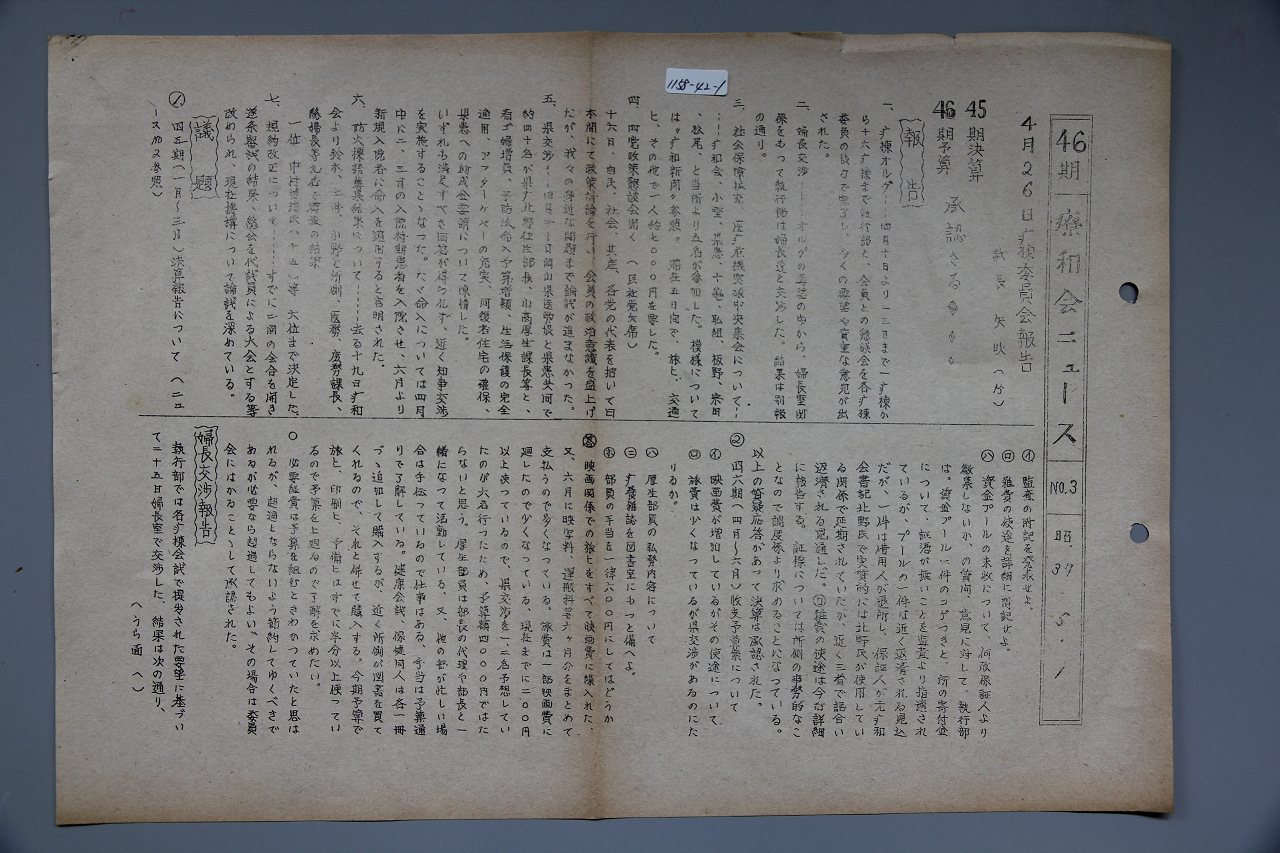 1158-42-1
46期 療和会ニュース NO.3 昭.37.5.1
4月26日疒棟委員会報告
議長 矢吹(分)
45期決算
46期予算 承認さる
報告
一、疒棟オルグ……四月十日より一三日まで一疒棟か
ら十六疒棟まで執行部と、会員との懇談会を各疒棟
委員の協力で完了し、多くの要望や貴重な意見が出
された。
二、婦長交渉……オルグの要望の中から、婦長室関
係をもって執行部は婦長達と交渉した。結果は別報
の通り。
三、社会保障拡充、医疒危機突破中央集会について…
…疒和会、小堅、県患、十亀、私組、板野、宗田
、松尾、と当所より五名が参加した。模様について
は〝疒和新聞〟参照。滞在五日間で、旅ヒ、交通
ヒ、その他で一人約七〇〇〇円を要した。
四、四党政策懇談会開く (民社党欠席)
十六日、自民、社会、共産、各党の代表を招いて曰
本間にて政策討論を行い、会員の政治意識を盛上げ
だが、我々の身近な問題まで論議が進まなかった。
五、県交渉……四月二十日岡山県医労娯と県患共同で
約四十名が県庁北野衛生部長、山高厚生課長等と、
看ゴ婦増員、予防法命入予算増額、生活保護の完全
適用、アフターケヤーの充実、回復者住宅の確保、
県患への助成金要請について陳情した。
いずれも満足すべき回答が得られず、近く知事交渉
を実施することゝなった。たゞ命入については四月
中に二、三百の入院待期患者を入院させ、六月より
新規入院者に命入を適用すると言明された。
六、防火標語募集結果について……去る十九日疒和
会より鈴木、七条、小野と所側、医務、庶務課長、
総婦長等九名で審査の結果
一位 中村清治氏、十五〆等 六位まで決定した。
七、規約改正について……すでに二回の会合を開き
逐条審議の結果、総会を代議員による大会とする等
改められ、現在機構について論議を深めている。
議題
① 四五期(一月〜三月)決算報告について (ニュ
ースNo2参照)
㋑ 監査の附記を発表せよ。
㋺ 雑費の使途を詳細に附記せよ。
㋩ 資金プールの未收について、何故保証人より
徴集しないか、の質問、意見に対して、執行部
は。資金プール一件のコゲつきと、所の寄付金
について、証憑が無いことを監査より指適され
ているが、プールの一件は近く返済される見込
だが、一件は借用人が退所し、保証人が元疒和
会書記北野氏で実質的には北野氏が使用してい
る関係で延期されていたが、近く三者で話合い
返済される見通しだ。㋺雑費の使途は今后詳細
に報告する。証標については所側の事務的なこ
となので調度係より求めることになっている。
以上の質疑応答があって決算は承認された。
② 四六期(四月〜六月)收支予算案について
㋑ 映画費が増加しているがその使途について
㋺ 旅費は少くなっているが県交渉があるのにた
りるか。
㋩ 厚生部員の私勢内容について
㋥ 疒養雑誌を図書室にもっと備へよ。
㋭ 部員の手当を一律六〇〇円にしてはどうか
㋕ 映画関係での旅ヒをすべて映画費に繰入れた、
又、六月に映写料、運搬料等六ヶ月介をまとめて
支払うので多くなっている。旅費は一部映画費に
廻したので少くなっている、現在までに二〇〇円
以上使っているので、県交渉を一、二名予想してい
たのが六名行ったため、予算額四〇〇〇円ではた
らないと思う。厚生部員は部長の代理や部長と一
緒になって活動している、又、他の部が忙しい場
合は手伝っているので仕事はある、手当は予算通
りで了解している。健康会議、保健同人は各一冊
づゝ追加して購入するが、近く所側が図書を買て
くれるので、それと併せて購入する。今期予算で
旅ヒ、印刷ヒ、予備ヒはすでに半分以上使ってい
るので予算を上廻るので了解を求めたい。
〇 必要経費は予算を組むときわかっていたと思は
れるが、超過とならないよう節約してゆくべきで
あるが必要なら超過してもよい、その場合は委員
会にはかることゝして承認された。
婦長交渉報告
執行部では各疒棟会議で提労された要望に基づい
て二十五日婦長室で交渉した、結果は次の通り、
(うら面へ)